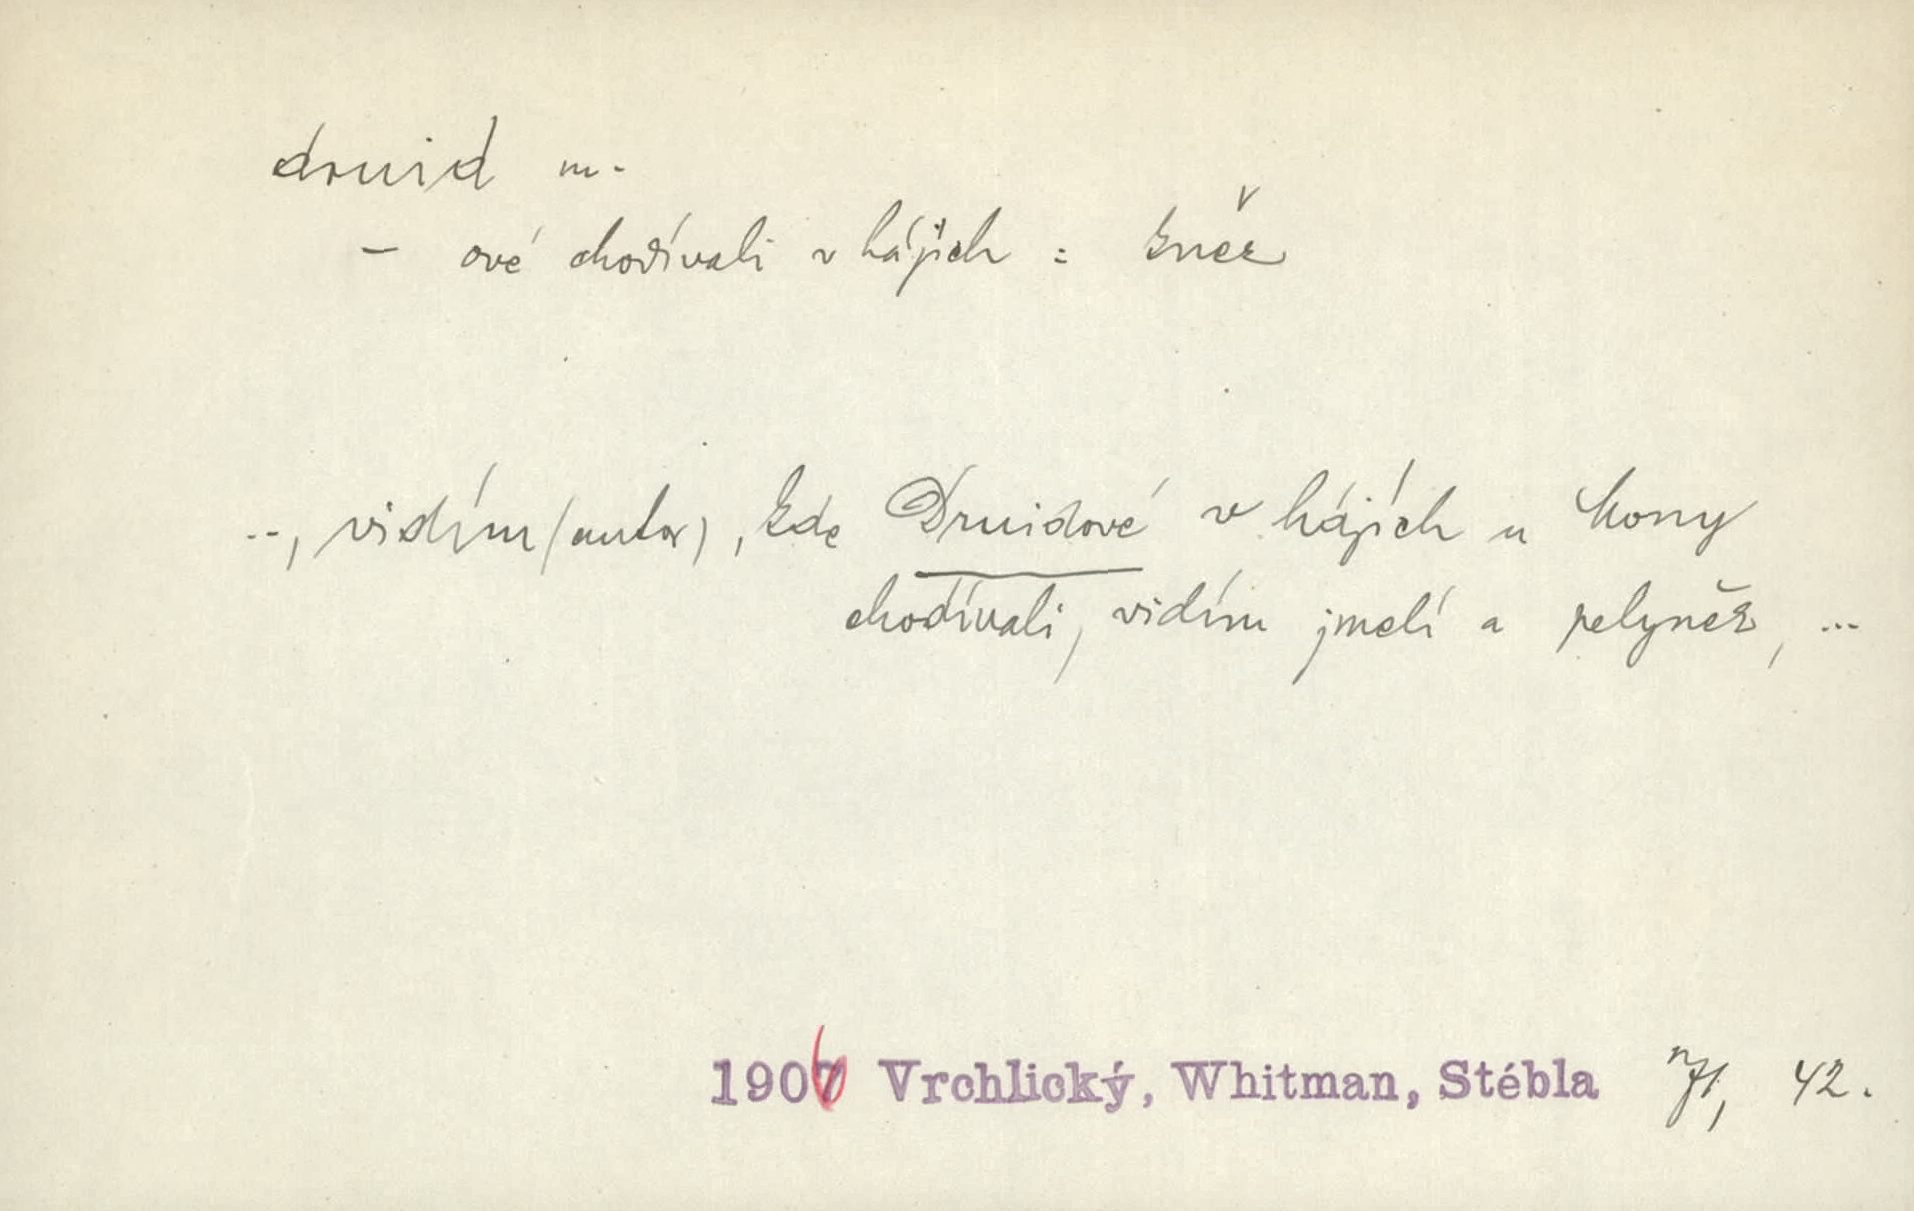 druid m.
- ové chodívali v hájích : kněz
.., vidím (autor), kde Druidové v hájích u Mony
chodívali, vidím jmelí a pelyněk, ...
1906 Vrchlický, Whitman, Stébla 42.